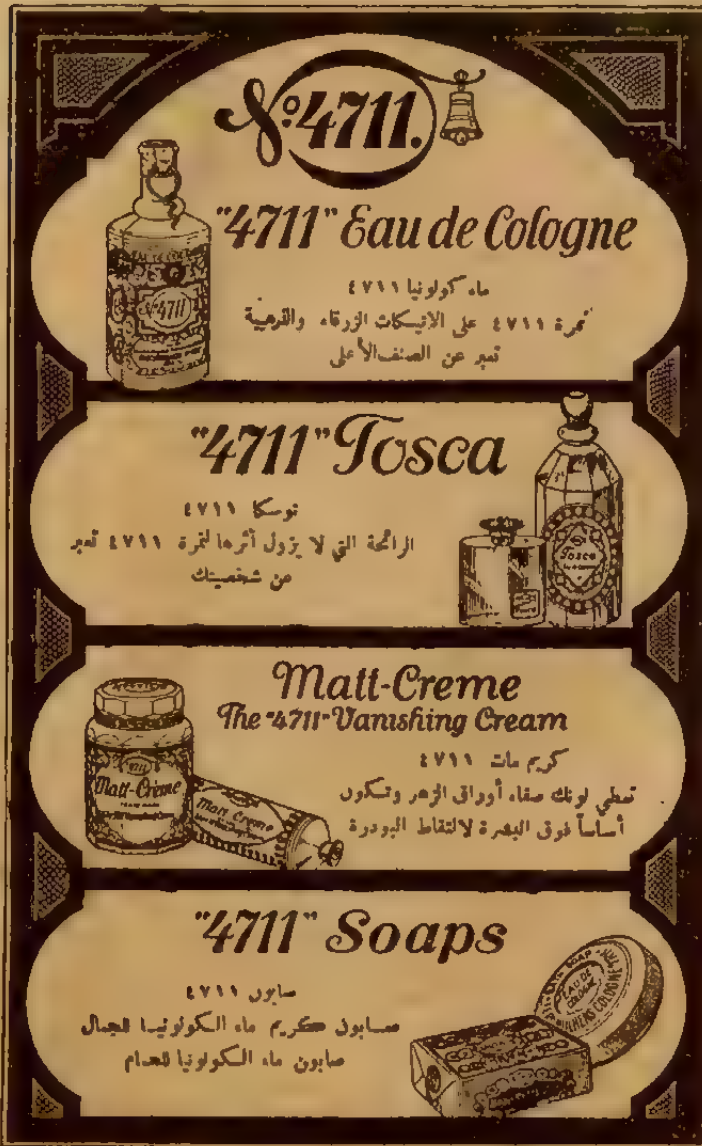 No 4711.
"4711" Eau de Cologne
EAU DE COLOGNE
No 4711
ماء كولونيا ٤٧١١
نمرة ٤٧١١ على الاتيسكات الزرقاء والذهبية
تعبر عن الصنف الأعلى
"4711" Tosca
Tosca
توسكا ٤٧١١
الرائحة التي لا يزول أثرها لنمرة ٤٧١١ تعبر
عن شخصيتك
Matt-Creme
The "4711" Vanishing Cream
4711
Matt-Creme
Matt Creme
كريم مات ٤٧١١
تعطي لونك صفاء أوراق الزهر وتكون
أساساً فوق البشرة لالتقاط البودرة
"4711" Soaps
صابون ٤٧١١
صابون كريم ماء الكولونيا للجمال
صابون ماء الكولونيا للحمام
SOAP
EAU DE
COLOGNE
MÜLHENS COLOGNE